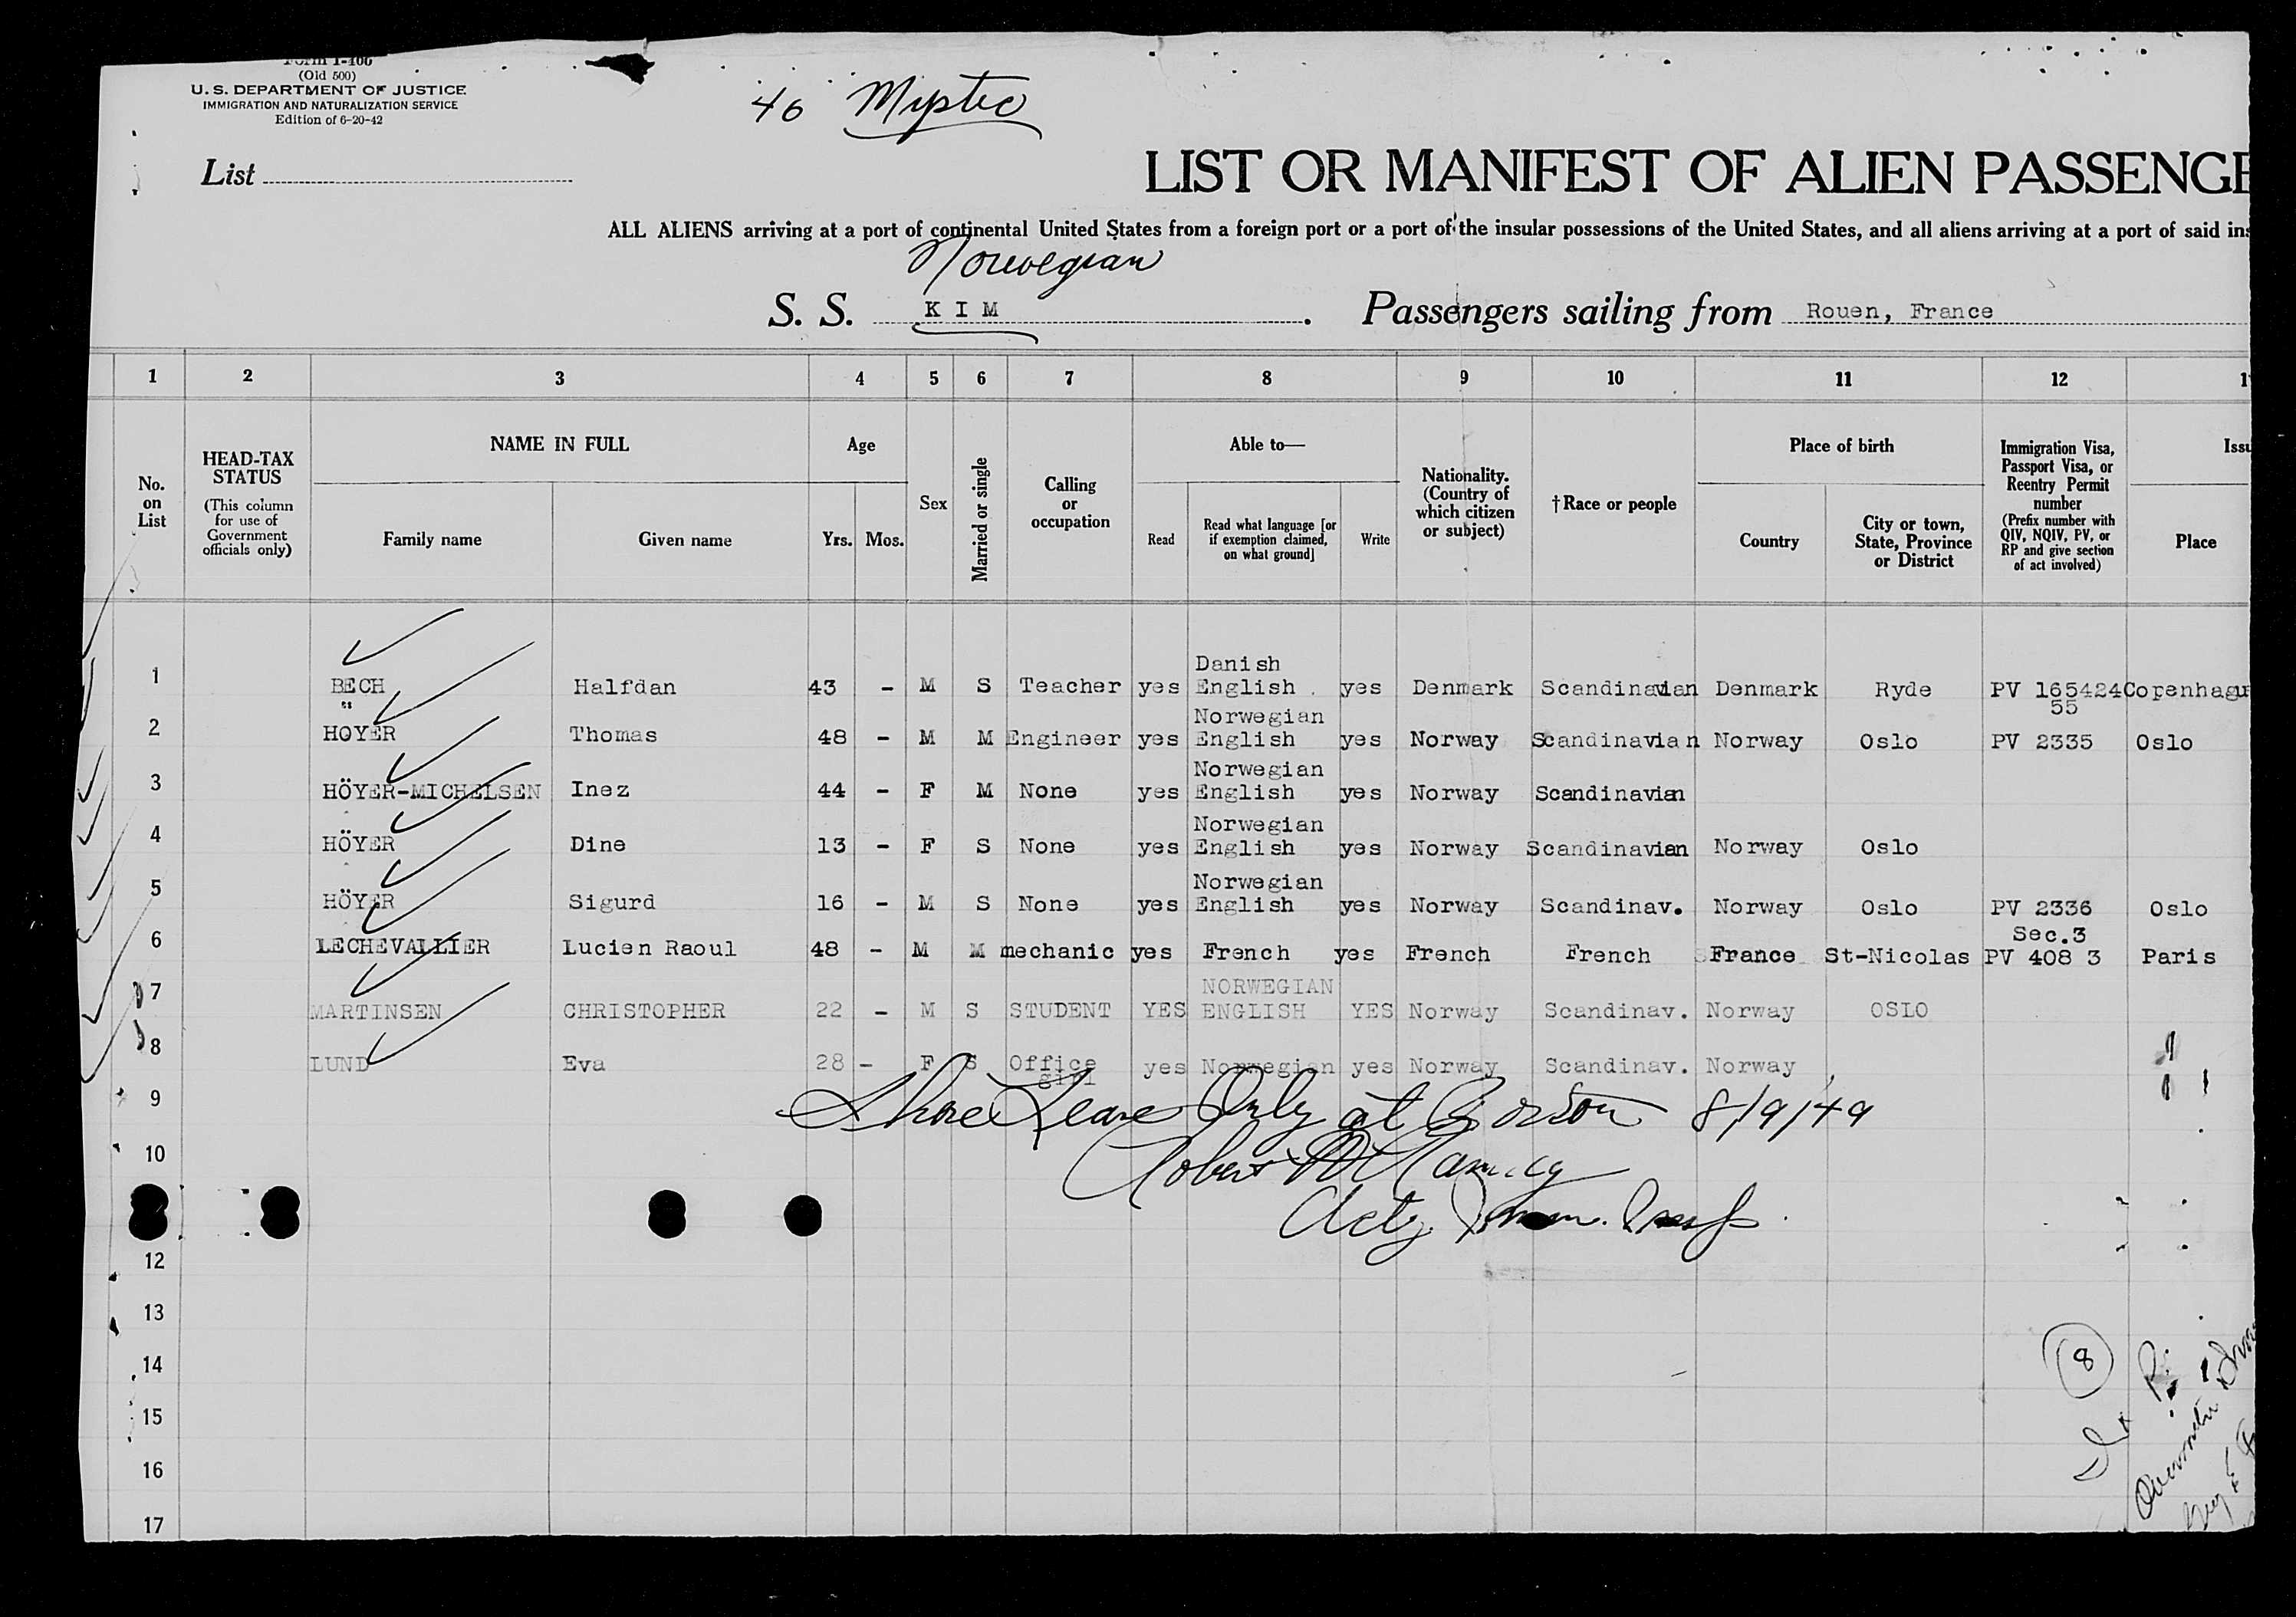 Form I-466
(Old 500)
U. S. DEPARTMENT OF JUSTICE
IMMIGRATION AND NATURALIZATION SERVICE
Edition of 6-20-42
46 Mystic
List
LIST OR MANIFEST OF ALIEN PASSENGE
ALL ALIENS arriving at a port of continental United States from a foreign port or a port of the insular possessions of the United States, and all aliens arriving at a port of said ins
Norwegian
S. S. KIM. Passengers sailing from Rouen, France
1 2 3 4 5 6 7 8 9 10 11 12 1
No. on List
HEAD-TAX STATUS
(This column for use of Government officials only)
NAME IN FULL
Family name Given name
Age
Yrs. Mos.
Sex
Married or single
Calling or occupation
Able to—
Read
Read what language [or if exemption claimed, on what ground]
Write
Nationality. (Country of which citizen or subject)
†Race or people
Place of birth
Country
City or town, State, Province or District
Immigration Visa, Passport Visa, or Reentry Permit number
(Prefix number with QIV, NQIV, PV, or RP and give section of act involved)
Issu
Place
1 BECH Halfdan 43 - M S Teacher yes Danish English yes Denmark Scandinavian Denmark Ryde PV 165424 Copenhagu
55
2 HOYER Thomas 48 - M M Engineer yes Norwegian English yes Norway Scandinavian Norway Oslo PV 2335 Oslo
3 HÖYER-MICHELSEN Inez 44 - F M None yes Norwegian English yes Norway Scandinavian
4 HÖYER Dine 13 - F S None yes Norwegian English yes Norway Scandinavian Norway Oslo
5 HÖYER Sigurd 16 - M S None yes Norwegian English yes Norway Scandinav. Norway Oslo PV 2336 Oslo
Sec.3
6 LECHEVALLIER Lucien Raoul 48 - M M mechanic yes French yes French French France St-Nicolas PV 408 3 Paris
7 MARTINSEN CHRISTOPHER 22 - M S STUDENT YES NORWEGIAN ENGLISH YES Norway Scandinav. Norway OSLO
8 LUND Eva 28 - F S Office girl yes Norwegian yes Norway Scandinav. Norway
9 Shore Leave Only at Boston 8/9/49
10 Robert
Actg. Imm. Insp.
12
13
14
8
15
16
17